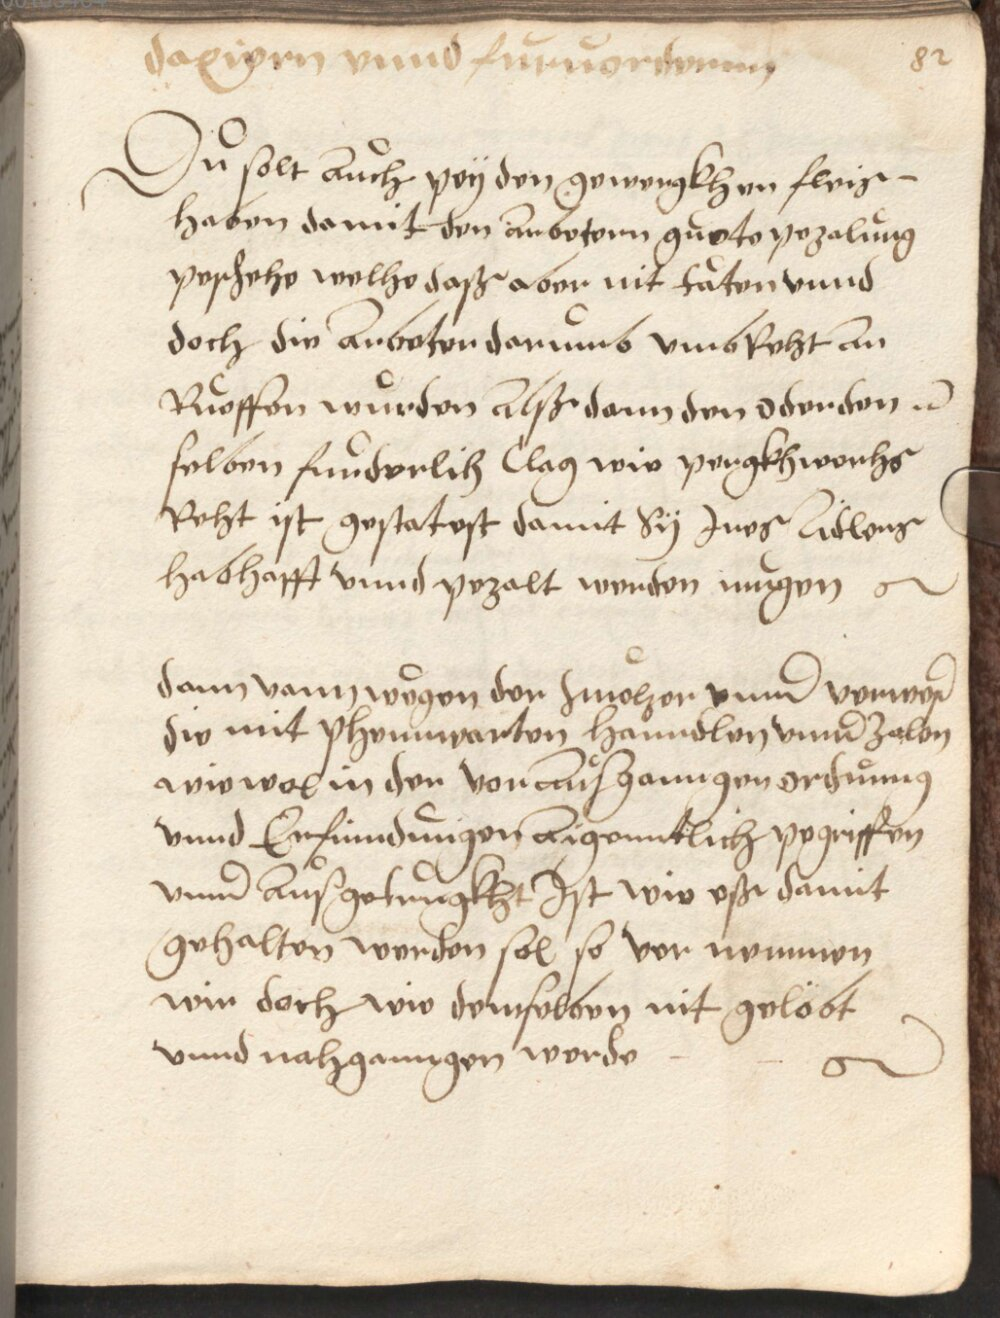 82
daxiern vnnd furuordernn
Du solt auch pey den gewergkhen fleis
haben damit den arbetern guete pezalung
peschehe welhe daß aber nit täten vnnd
doch die arbeter darumb vmb Reht an
Rueffen wurden alß dann den oder den
selben furderlih Clag wie pergkhwerchs
Reht ist gestatest damit Sy Ires Lidlons
habhafft vnnd pezalt werden mugen
dann vann wegen der smelzer vnnd
die mit phennwarten hanndlen vnnd Zalen
wiewol in der vor außganngen ordnung
vnnd Erfinndungen aigenntlich pegriffen
vnnd außgetrugkht Ist wie eß damit
gehalten werden sol so ver nemmen
wir doch wie demselben nit gelebt
vnnd nahganngen werde